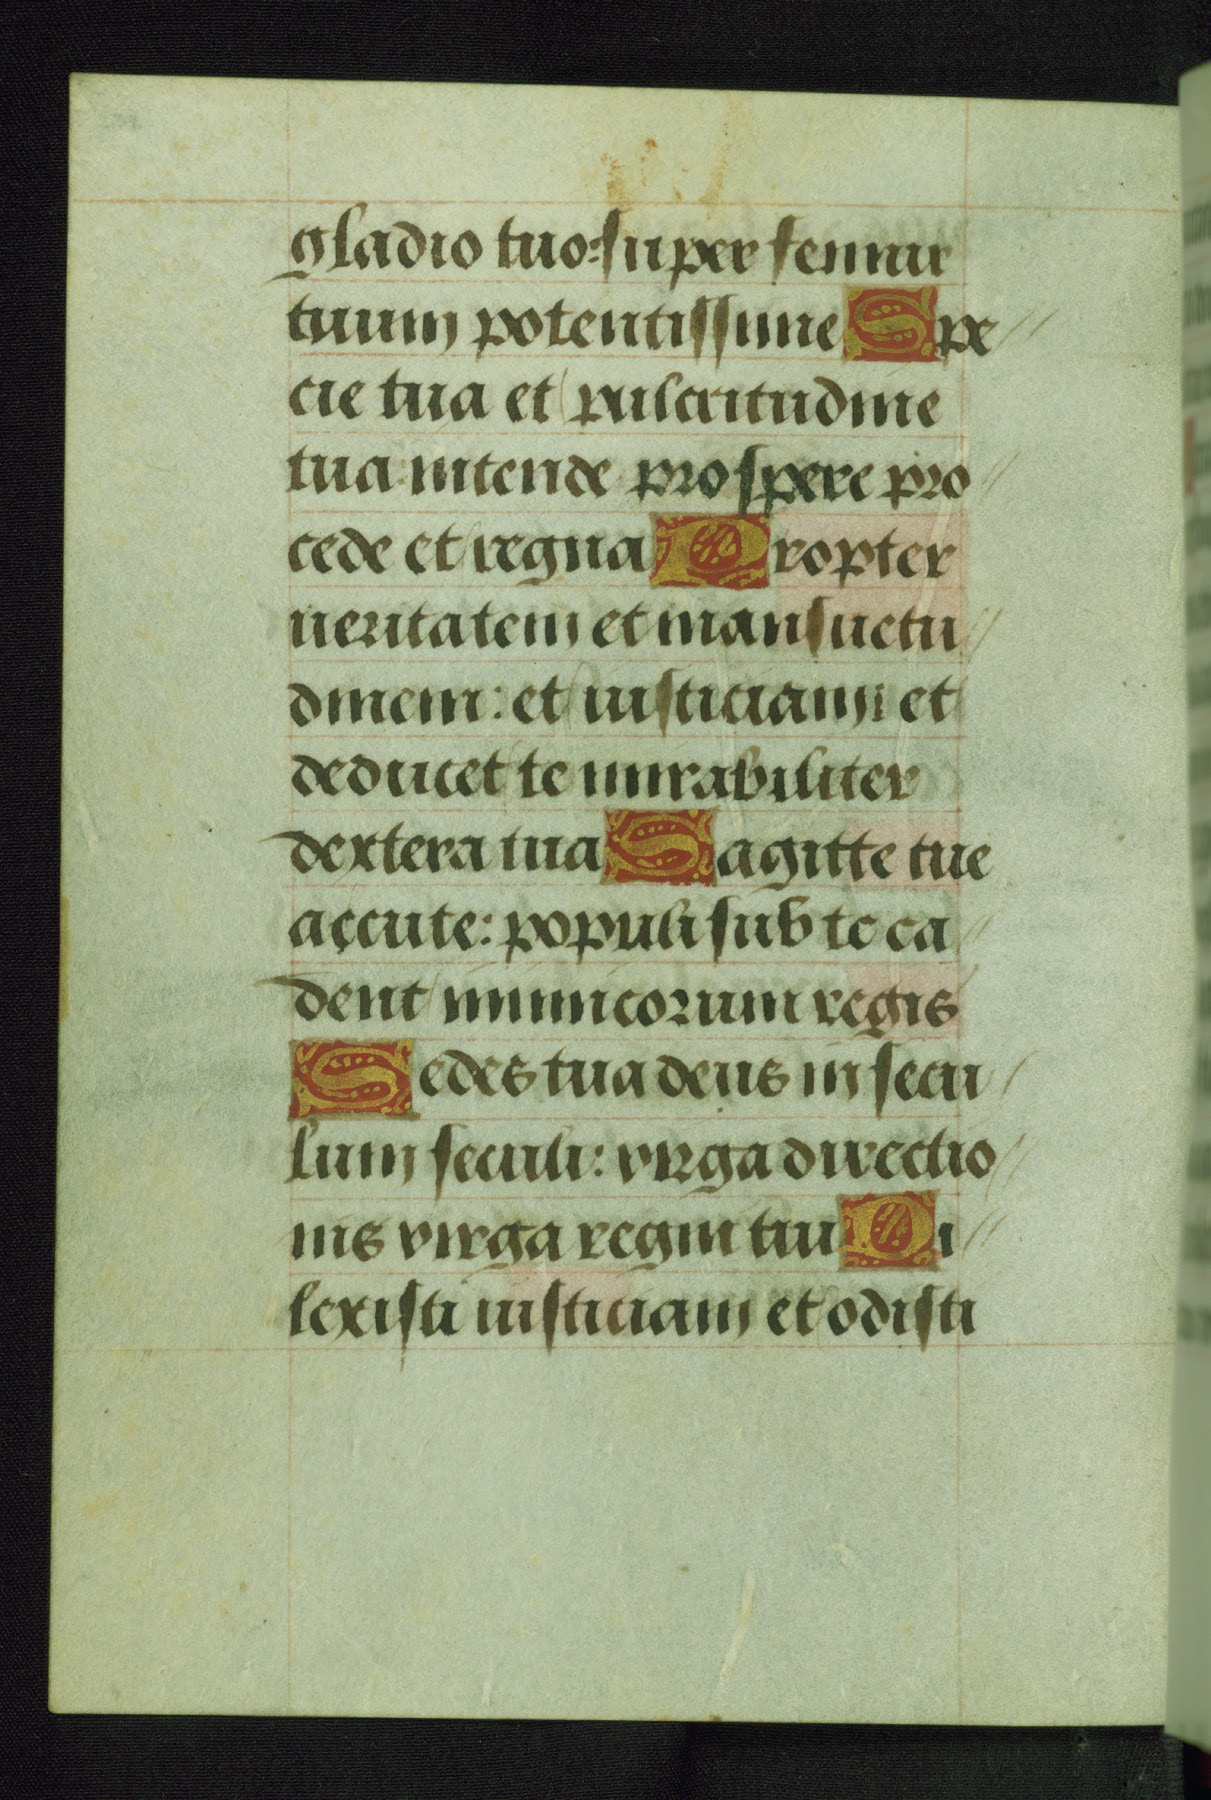 gladio tuo: super femur
tuum potentissime Spe
cie tua et pulcritudine
tua intende prospere pro
cede et regna Propter
ueritatem et mansuetu
dinem: et iusticiam: et
deducet te mirabiliter
dextera tua Sagitte tue
accute: populi sub te ca
dent inimicorum regis
Sedes tua deus in secu
lum seculi: virga directio
nis virga regni tui Di
lexisti iusticiam et odisti